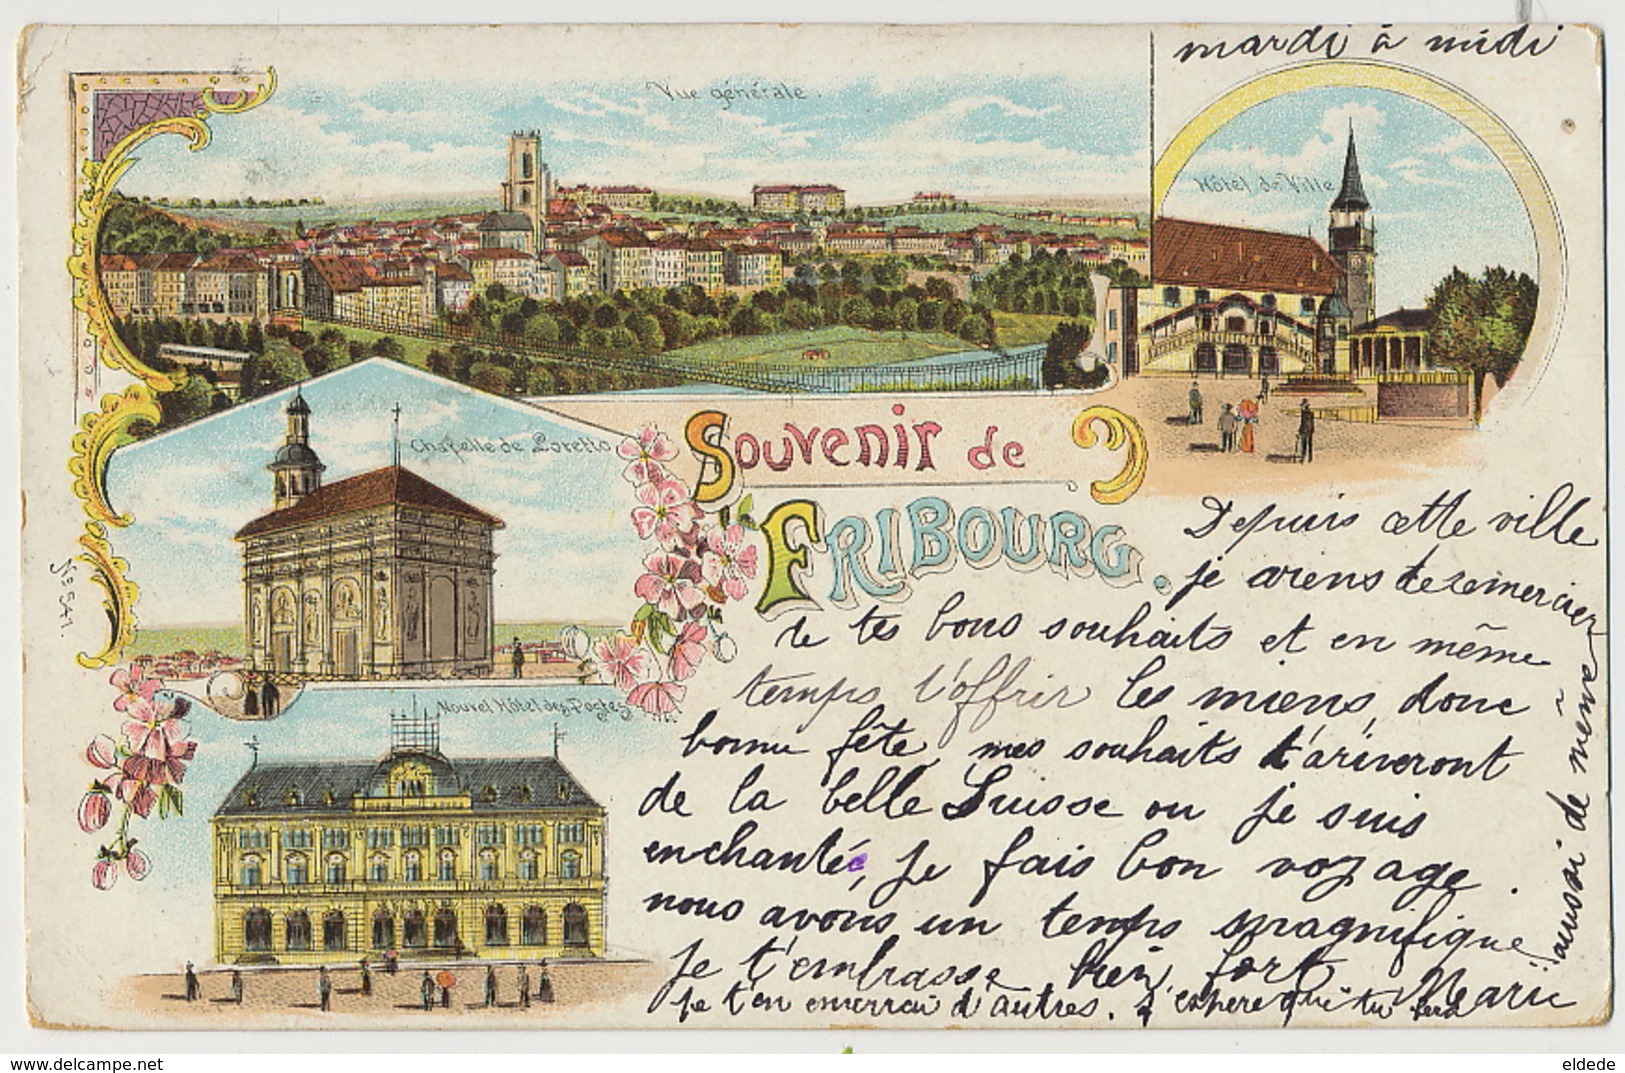 mardi à midi
Vue générale.
Hôtel de Ville
Chapelle de Loretto
Souvenir de
FRIBOURG.
No 541.
Nouvel Hôtel des Postes
Depuis cette ville
je viens te remercier
de tes bons souhaits et en même
temps t'offrir les miens, donc
bonne fête, mes souhaits t'ariveront
de la belle Suisse ou je suis
enchantée, je fais bon voyage.
nous avons un temps magnifique
je t'embrasse bien fort Marie
je t'en enverrai d'autres. J'espère que tu feras
aussi de même
eldede
www.delcampe.net